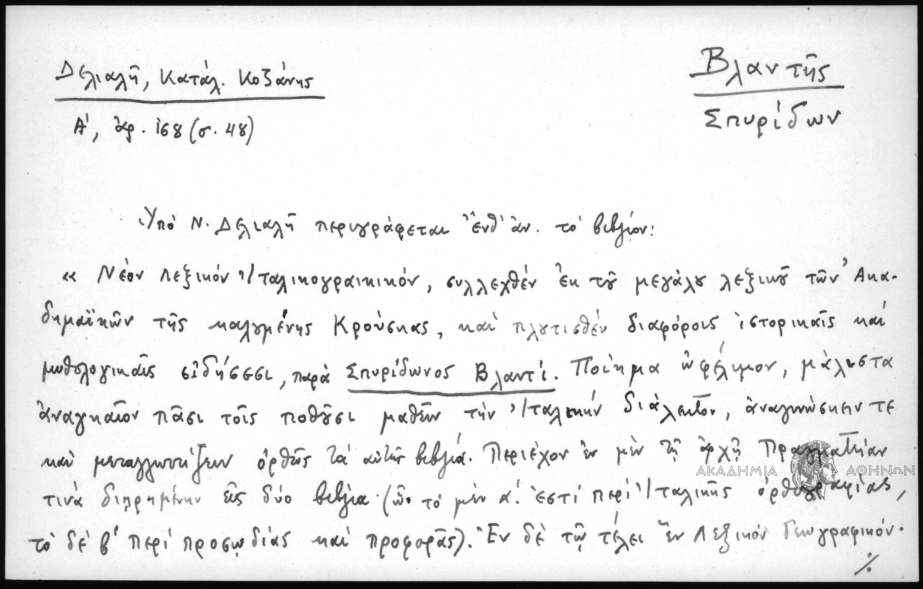 Δελιαλῆ, Κατάλ. Κοζάνης
Βλαντῆς
Α', ἀρ. 168 (σ. 48)
Σπυρίδων
Ὑπό Ν. Δελιαλῆ περιγράφεται ἔνθ' ἀν. τό βιβλίον:
« Νέον Λεξικόν Ἰταλικογραικικόν, συλλεχθέν ἐκ τοῦ μεγάλου λεξικοῦ τῶν Ἀκα-
δημαϊκῶν τῆς καλουμένης Κρούσκας, καί πλουτισθέν διαφόροις ἱστορικαῖς καί
μυθολογικαῖς εἰδήσεσι, παρά Σπυρίδωνος Βλαντί. Ποίημα ὠφέλιμον, μάλιστα
ἀναγκαῖον πᾶσι τοῖς ποθοῦσι μαθεῖν τήν Ἰταλικήν διάλεκτον, ἀναγινώσκειν τε
καί μεταγλωττίζειν ὀρθῶς τά αὐτῆς βιβλία. Περιέχον ἐν μέν τῇ ἀρχῇ Πραγματείαν
τινά διῃρημένην εἰς δύο βιβλία (ὧν τό μέν α'. ἐστί περί Ἰταλικῆς ὀρθογραφίας,
τό δέ β' περί προσῳδίας καί προφορᾶς). Ἐν δέ τῷ τέλει ἕν Λεξικόν Γεωγραφικόν.
./.
ΑΚΑΔΗΜΙΑ ΑΘΗΝΩΝ